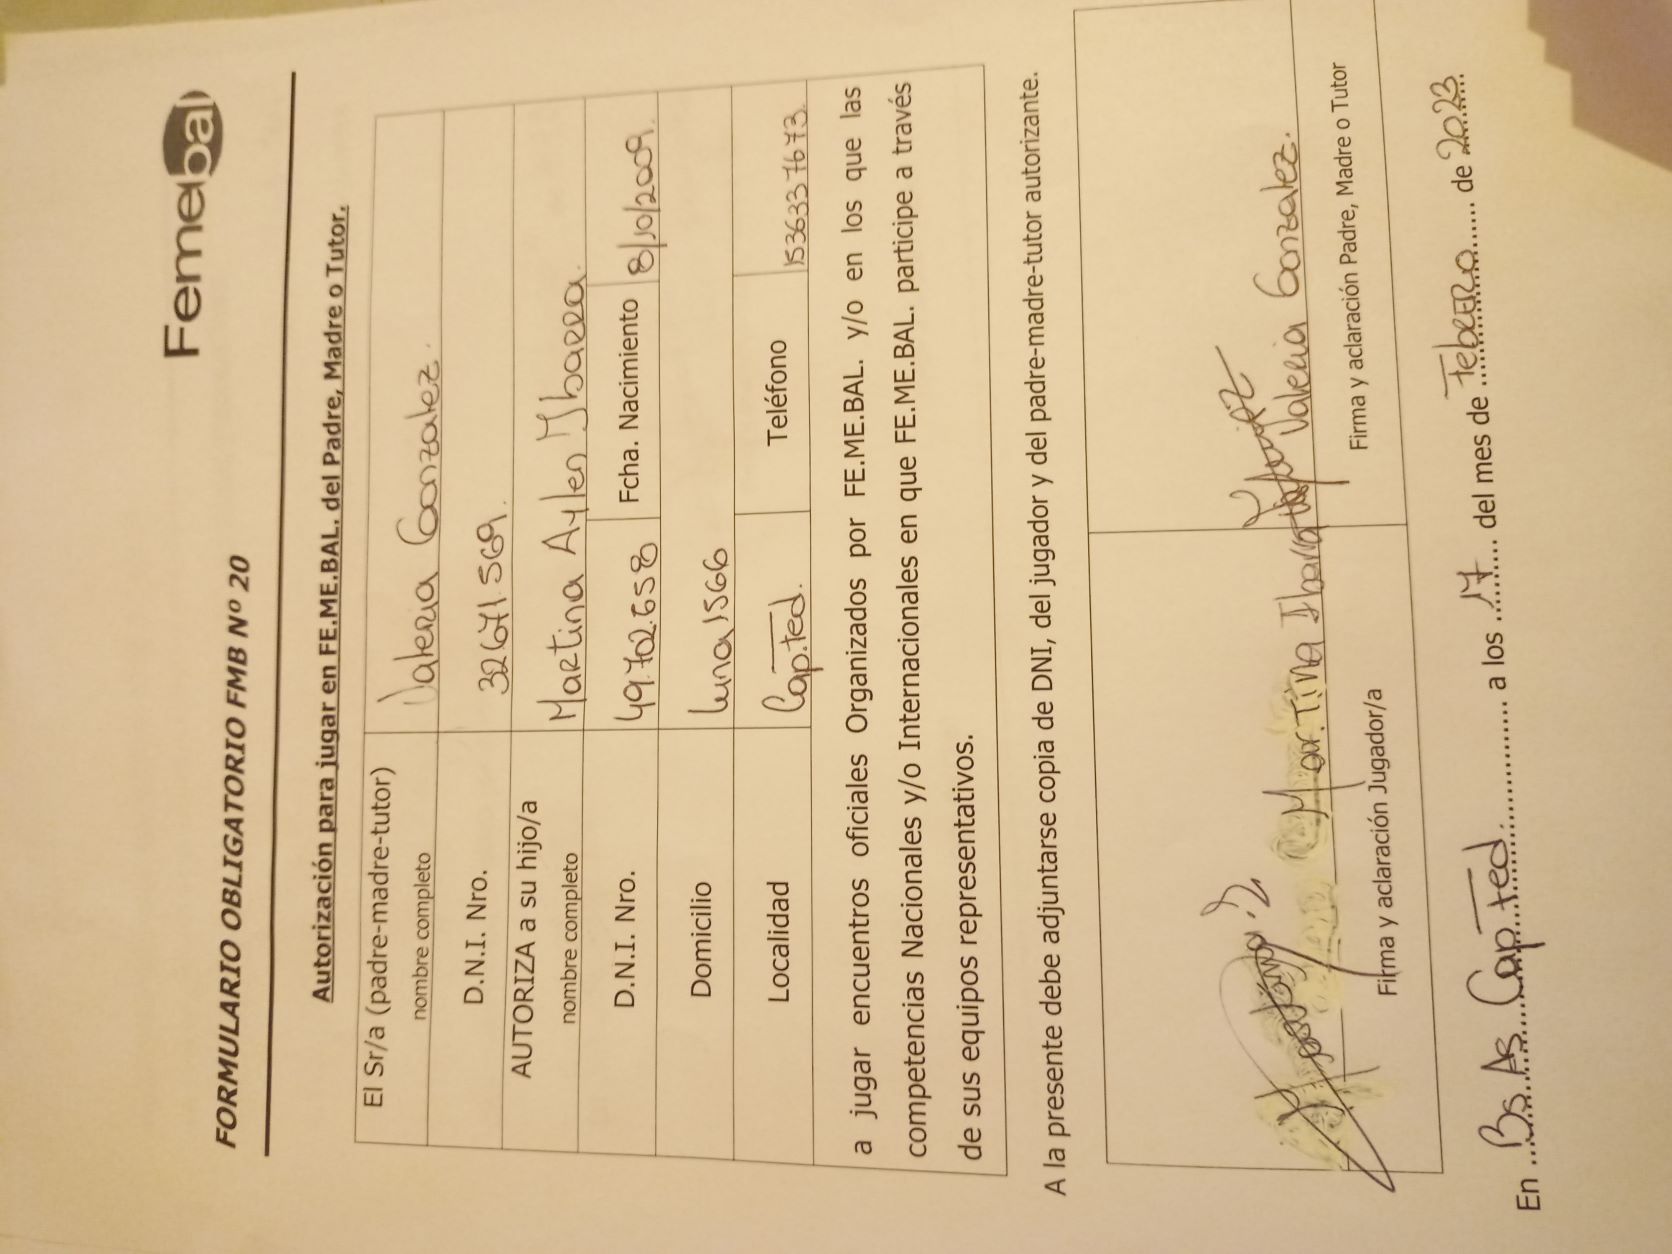 Femebal
FORMULARIO OBLIGATORIO FMB Nº 20
Autorización para jugar en FE.ME.BAL. del Padre, Madre o Tutor.
El Sr/a (padre-madre-tutor) nombre completo Valeria Gonzalez.
D.N.I. Nro. 32671.569.
AUTORIZA a su hijo/a nombre completo Martina Aylen Ybarra.
D.N.I. Nro. 49.702.658 Fcha. Nacimiento 8/10/2009.
Domicilio Luna 1566
Localidad Cap.Fed. Teléfono 1536337673.
a jugar encuentros oficiales Organizados por FE.ME.BAL. y/o en los que las
competencias Nacionales y/o Internacionales en que FE.ME.BAL. participe a través
de sus equipos representativos.
A la presente debe adjuntarse copia de DNI, del jugador y del padre-madre-tutor autorizante.
Martina Ibarra Valeria Gonzalez.
Firma y aclaración Jugador/a Firma y aclaración Padre, Madre o Tutor
En Bs. As Cap.Fed. a los 17 del mes de Febrero de 2023